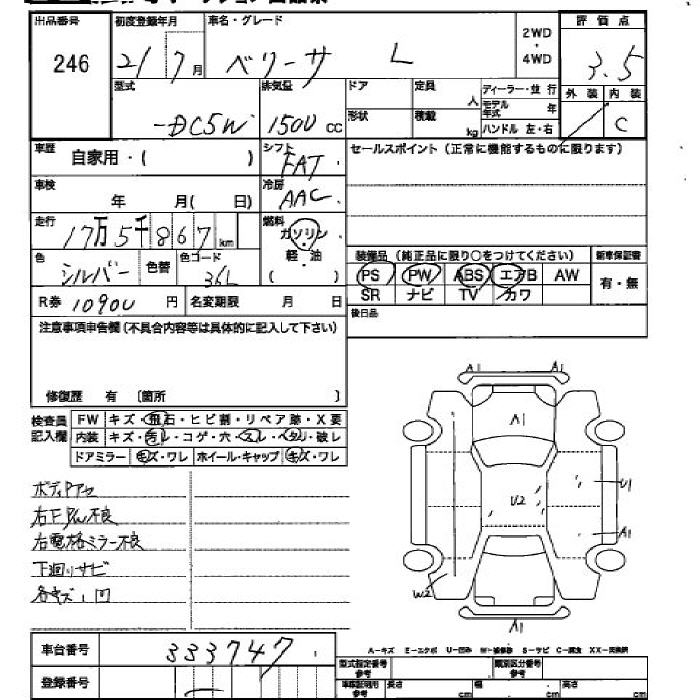 出品番号 初度登録年月 車名・グレード 2WD・4WD 評価点
246 21 7月 ベリーサ L 3.5
型式 排気量 ドア 定員 人 ディーラー・並行 外装 内装
-DC5W 1500 cc 形状 積載 kg モデル年式 年 ハンドル 左・右 C
車歴 自家用・( ) シフト FAT セールスポイント(正常に機能するものに限ります)
車検 年 月( 日) 冷房 AAC
走行 17万5千867km 燃料 ガソリン・軽・油 ( )
装備品(純正品に限り○をつけてください) 新車保証書
色 シルバー 色替 色コード 36L PS PW ABS エアB AW 有・無
R券 10900円 名変期限 月 日 SR ナビ TV カワ
後日品
注意事項申告欄(不具合内容等は具体的に記入して下さい)
修復歴 有 〔箇所 〕
検査員記入欄 FW キズ・飛石・ヒビ割・リペア跡・X要
内装 キズ・汚レ・コゲ・穴・スレ・ヘタリ・破レ
ドアミラー キズ・ワレ ホイール・キャップ キズ・ワレ
A1 A1
A1
U2 U1
A1
W2
A1
ボディPアセ
右FP/W不良
右電格ミラー不良
下廻りサビ
各キズ、凹
車台番号 333747
A-キズ E-エクボ U-凹み W-補修跡 S-サビ C-腐食 XX-交換済
登録番号 型式指定番号 参考 類別区分番号 参考
車検証利用 参考 長さ cm 幅 cm 高さ cm